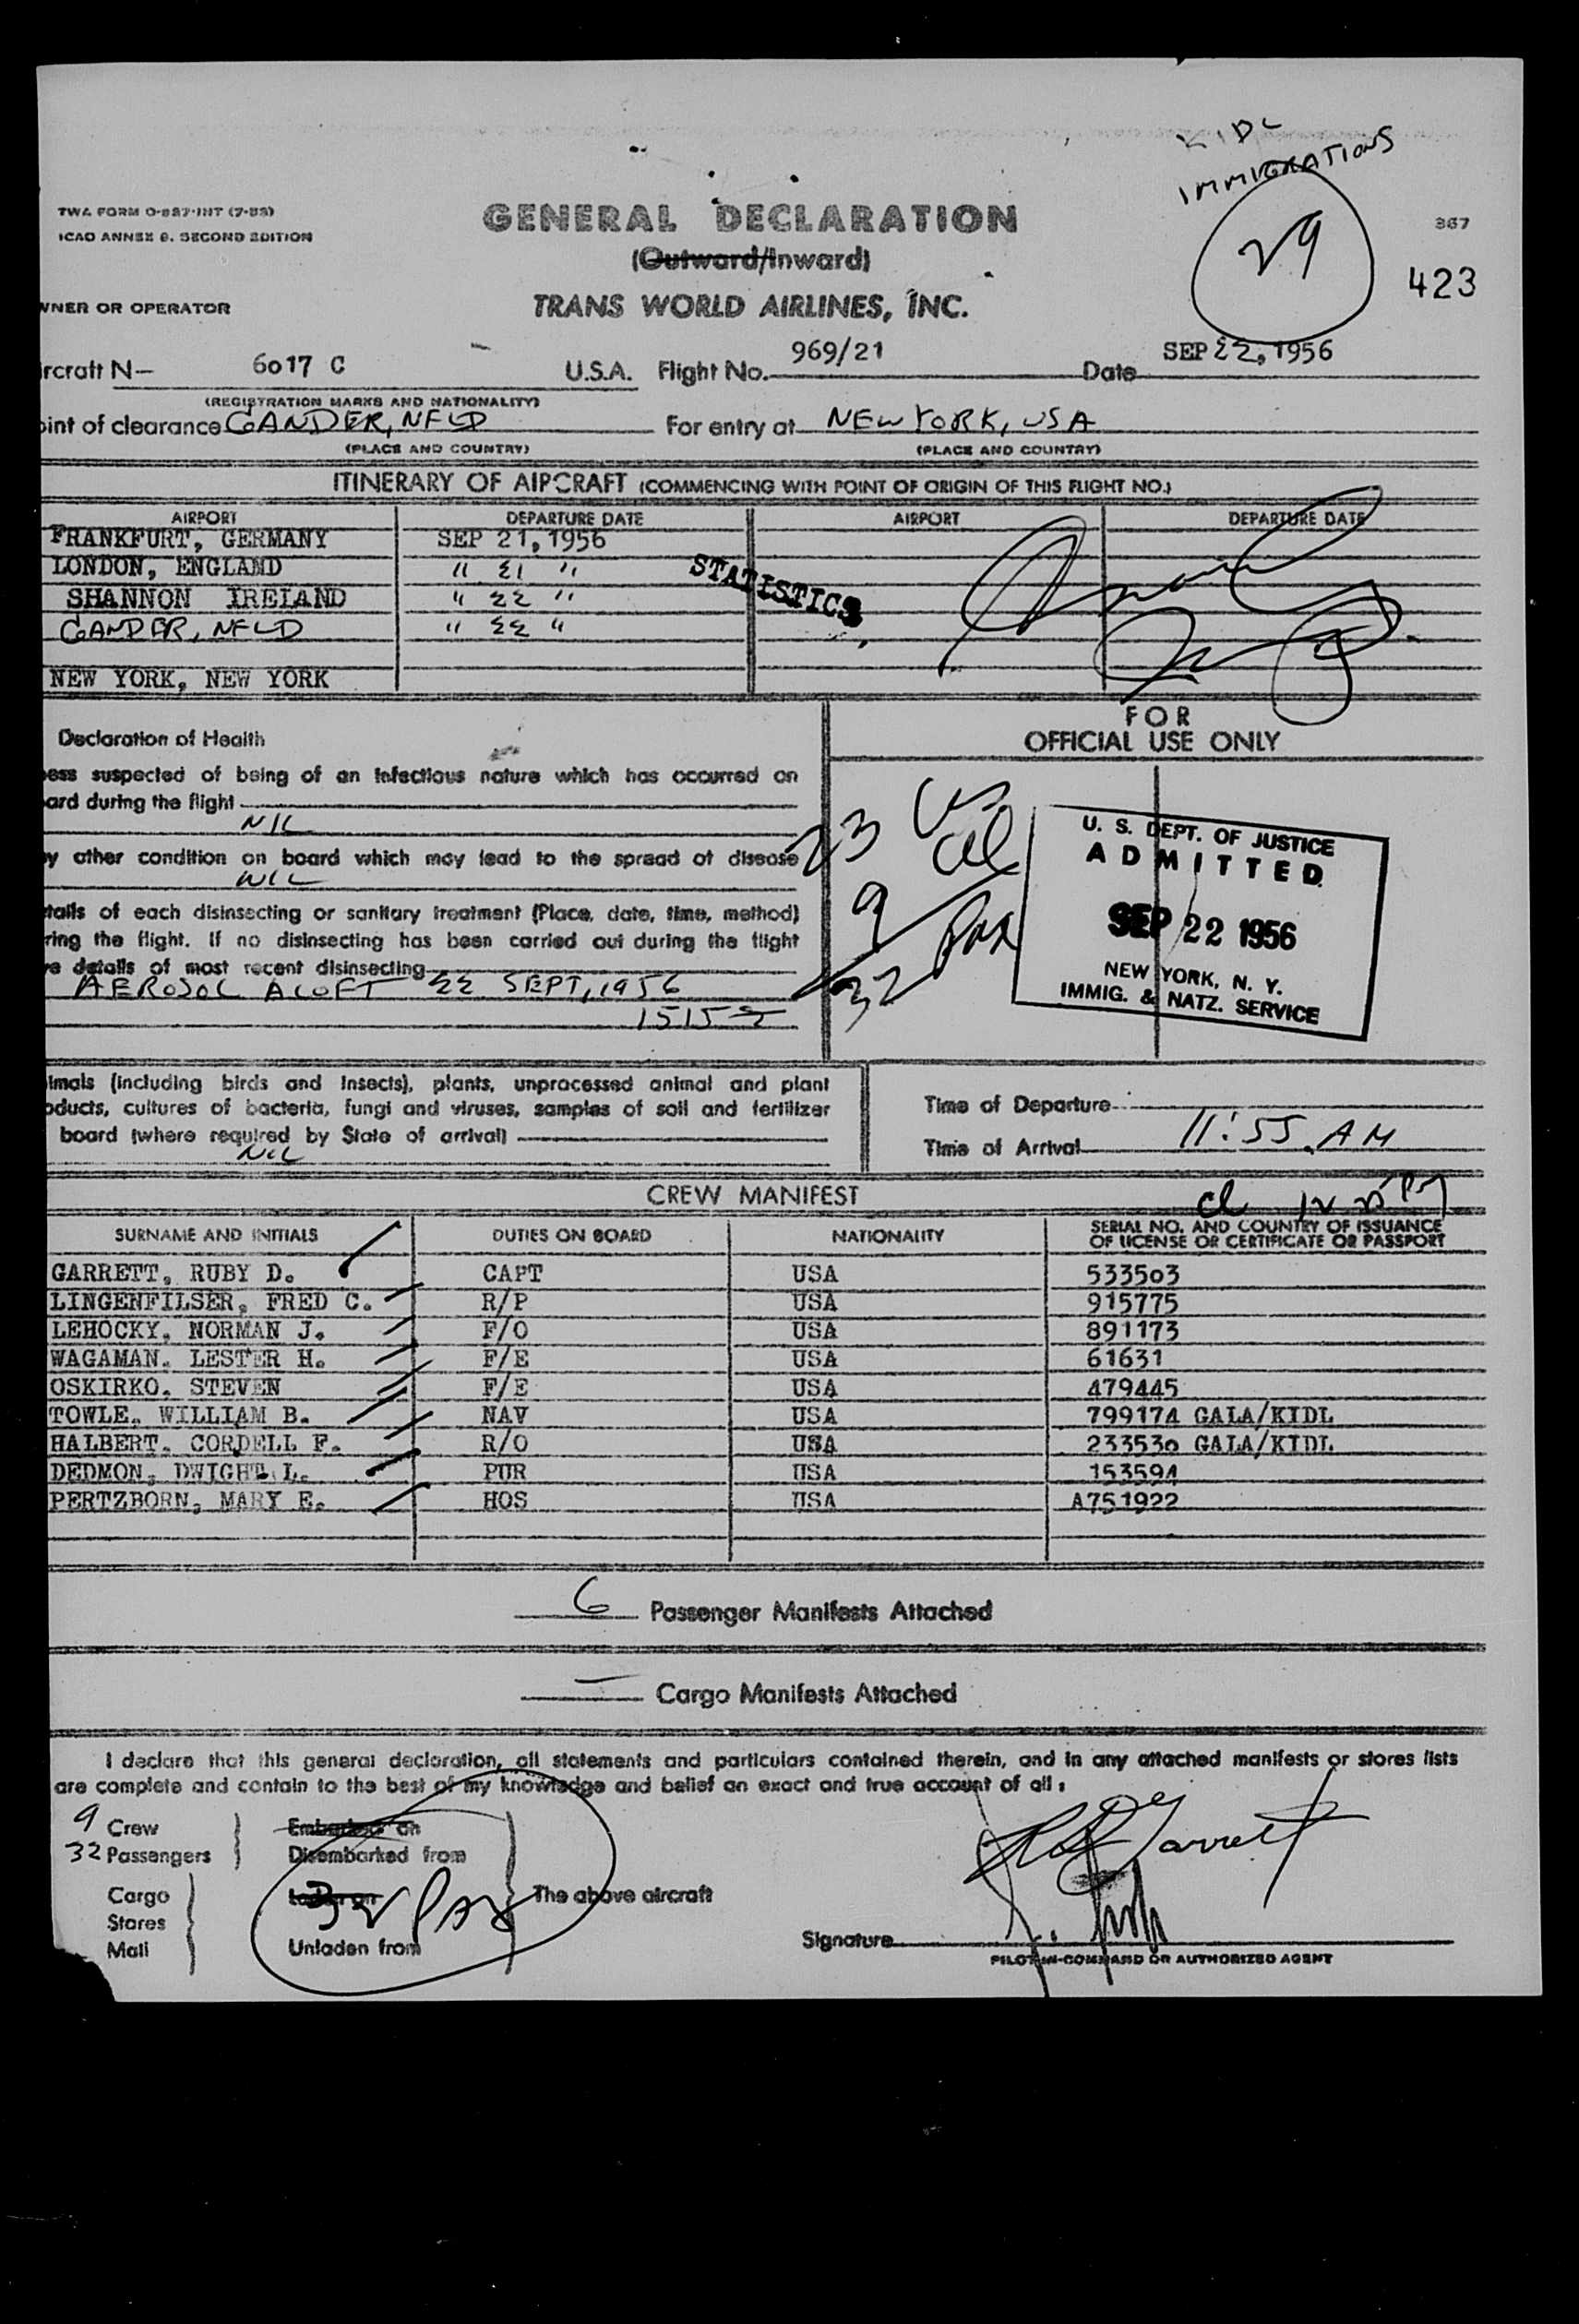 KIDL
IMMIGRATIONS
29
TWA FORM O-887-INT (7-55)
ICAO ANNEX 9. SECOND EDITION
GENERAL DECLARATION
367
(Outward/Inward)
423
WNER OR OPERATOR
TRANS WORLD AIRLINES, INC.
ircraft N— 6017 C U.S.A. Flight No. 969/21 Date SEP 22, 1956
(REGISTRATION MARKS AND NATIONALITY)
oint of clearance GANDER, NFLD For entry at NEW YORK, USA
(PLACE AND COUNTRY) (PLACE AND COUNTRY)
ITINERARY OF AIRCRAFT (COMMENCING WITH POINT OF ORIGIN OF THIS FLIGHT NO.)
AIRPORT DEPARTURE DATE AIRPORT DEPARTURE DATE
FRANKFURT, GERMANY SEP 21, 1956
LONDON, ENGLAND " 21 "
SHANNON IRELAND " 22 "
GANDER, NFLD " 22 "
STATISTICS
NEW YORK, NEW YORK
Declaration of Health
ness suspected of being of an infectious nature which has occurred on
oard during the flight
NIL
ny other condition on board which may lead to the spread of disease
NIL
etails of each disinsecting or sanitary treatment (Place, date, time, method)
uring the flight. If no disinsecting has been carried out during the flight
ve details of most recent disinsecting
AEROSOL ALOFT 22 SEPT, 1956
1515 Z
FOR
OFFICIAL USE ONLY
23 US
9 al
32 Pax
U. S. DEPT. OF JUSTICE
ADMITTED
SEP 22 1956
NEW YORK, N. Y.
IMMIG. & NATZ. SERVICE
imals (including birds and insects), plants, unprocessed animal and plant
oducts, cultures of bacteria, fungi and viruses, samples of soil and fertilizer
board (where required by State of arrival)
NIL
Time of Departure
Time of Arrival 11:55 AM
CREW MANIFEST
SURNAME AND INITIALS DUTIES ON BOARD NATIONALITY SERIAL NO. AND COUNTRY OF ISSUANCE
OF LICENSE OR CERTIFICATE OR PASSPORT
GARRETT, RUBY D. CAPT USA 533503
LINGENFILSER, FRED C. R/P USA 915775
LEHOCKY, NORMAN J. F/O USA 891173
WAGAMAN, LESTER H. F/E USA 61631
OSKIRKO, STEVEN F/E USA 479445
TOWLE, WILLIAM B. NAV USA 799174 GALA/KIDL
HALBERT, CORDELL F. R/O USA 233530 GALA/KIDL
DEDMON, DWIGHT L. PUR USA 153594
PERTZBORN, MARY E. HOS USA A751922
6 Passenger Manifests Attached
— Cargo Manifests Attached
I declare that this general declaration, all statements and particulars contained therein, and in any attached manifests or stores lists
are complete and contain to the best of my knowledge and belief an exact and true account of all:
9 Crew
32 Passengers
Embarked on
Disembarked from
Cargo
Stores
Mail
Laden on
32 Pax
Unladen from
The above aircraft
R D Garrett
Signature
PILOT-IN-COMMAND OR AUTHORIZED AGENT